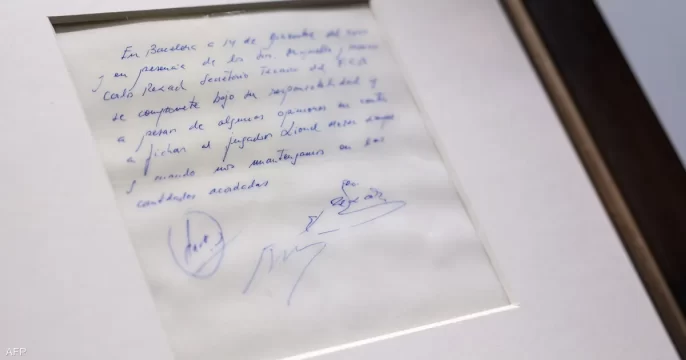 En Barcelona a 14 de diciembre del 2000
y en presencia de los Srs. Minguella y Horacio
Carlos Rexach Secretario Tecnico del F.C.B
se compromete bajo su responsabilidad y
a pesar de algunas opiniones en contra
a fichar al jugador Lionel Messi siempre
y cuando nos mantengamos en las
cantidades acordadas
AFP